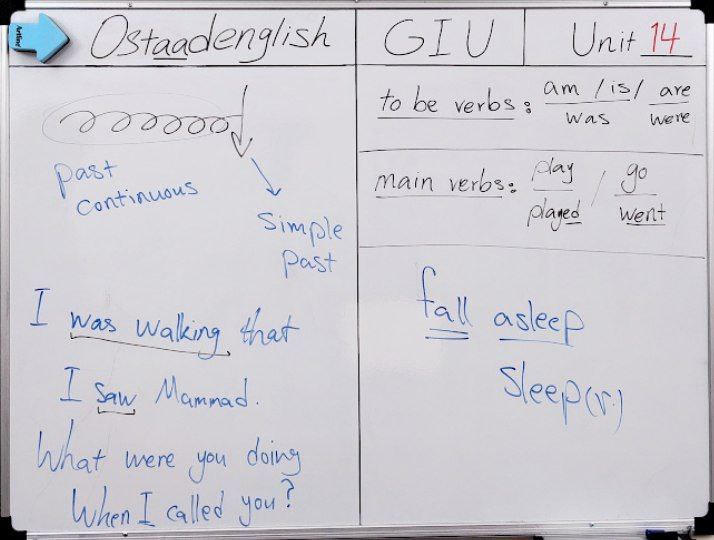 Artline
Ostaadenglish
GIU
Unit 14
past
continuous
Simple
past
I was walking that
I saw Mammad.
What were you doing
When I called you?
to be verbs: am / is / are
was were
main verbs: play / go
played went
fall asleep
Sleep (v.)